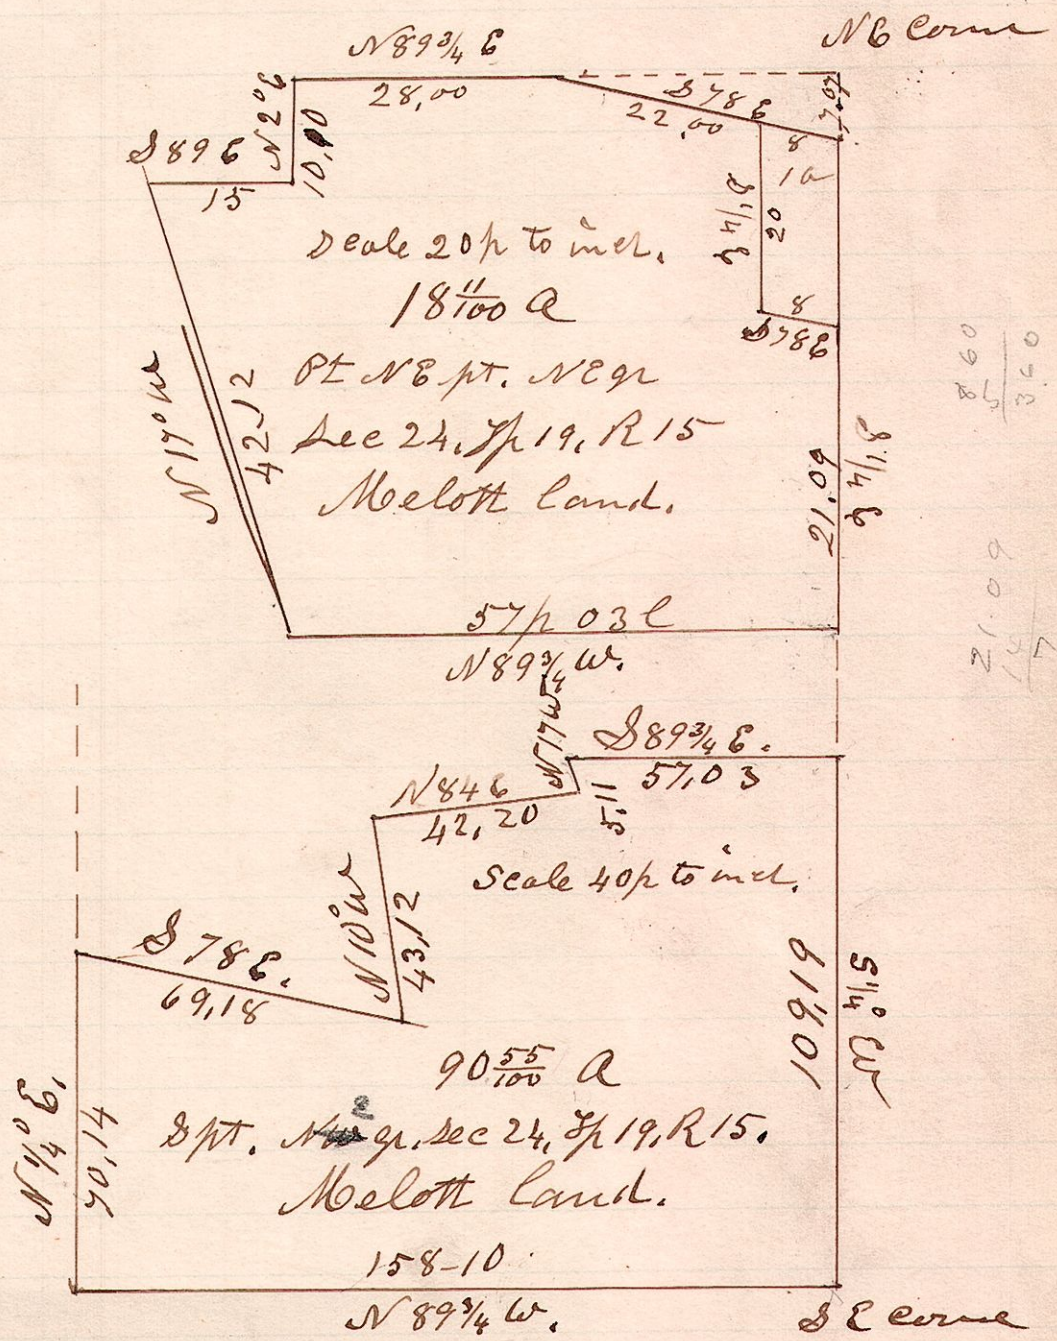 NE Corne
N 89 3/4 E
28,00
S 78 E
22,00
7.07
N 2° E
10,10
S 89 E
15
8
1a
S 1/4 E
20
8
S 78 E
Scale 20p to inch.
18 11/100 A
Pt NE pt. NE qr
Sec 24, Tp 19, R 15
Melott land.
N 17° W
42,12
21.09
S 1/4 E
57p 03l
N 89 3/4 W.
N 17 W
5,11
S 89 3/4 E.
57,03
N 84 E
42,20
Scale 40p to inch.
N 10° W
43,12
S 78 E.
69,18
109,19
S 1/4° W
90 55/100 A
N 1/4° E,
70,14
S pt. NE qr, Sec 24, Tp 19, R 15.
Melott land.
158-10
N 89 3/4 W.
S E Corne
8 60
5
360
21.09
14
7